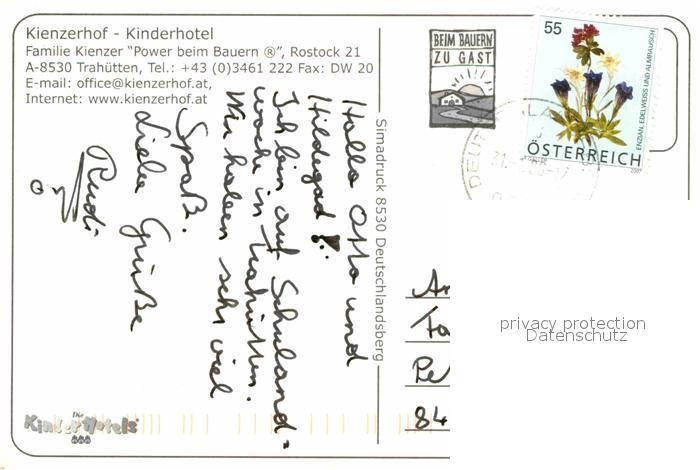 Kienzerhof - Kinderhotel
Familie Kienzer "Power beim Bauern ®", Rostock 21
A-8530 Trahütten, Tel.: +43 (0)3461 222 Fax: DW 20
E-mail: office@kienzerhof.at,
Internet: www.kienzerhof.at
BEIM BAUERN
ZU GAST
55
ENZIAN, EDELWEISS UND ALMRAUSCH
ÖSTERREICH
2007
Hallo Otto und
Hildegard!
Ich bin auf Schuland-
woche in Trahütten.
Wir haben sehr viel
Spaß.
Liebe Grüße
Rudi
Simadruck 8530 Deutschlandsberg
84
privacy protection
Datenschutz
Die
KinderHotels